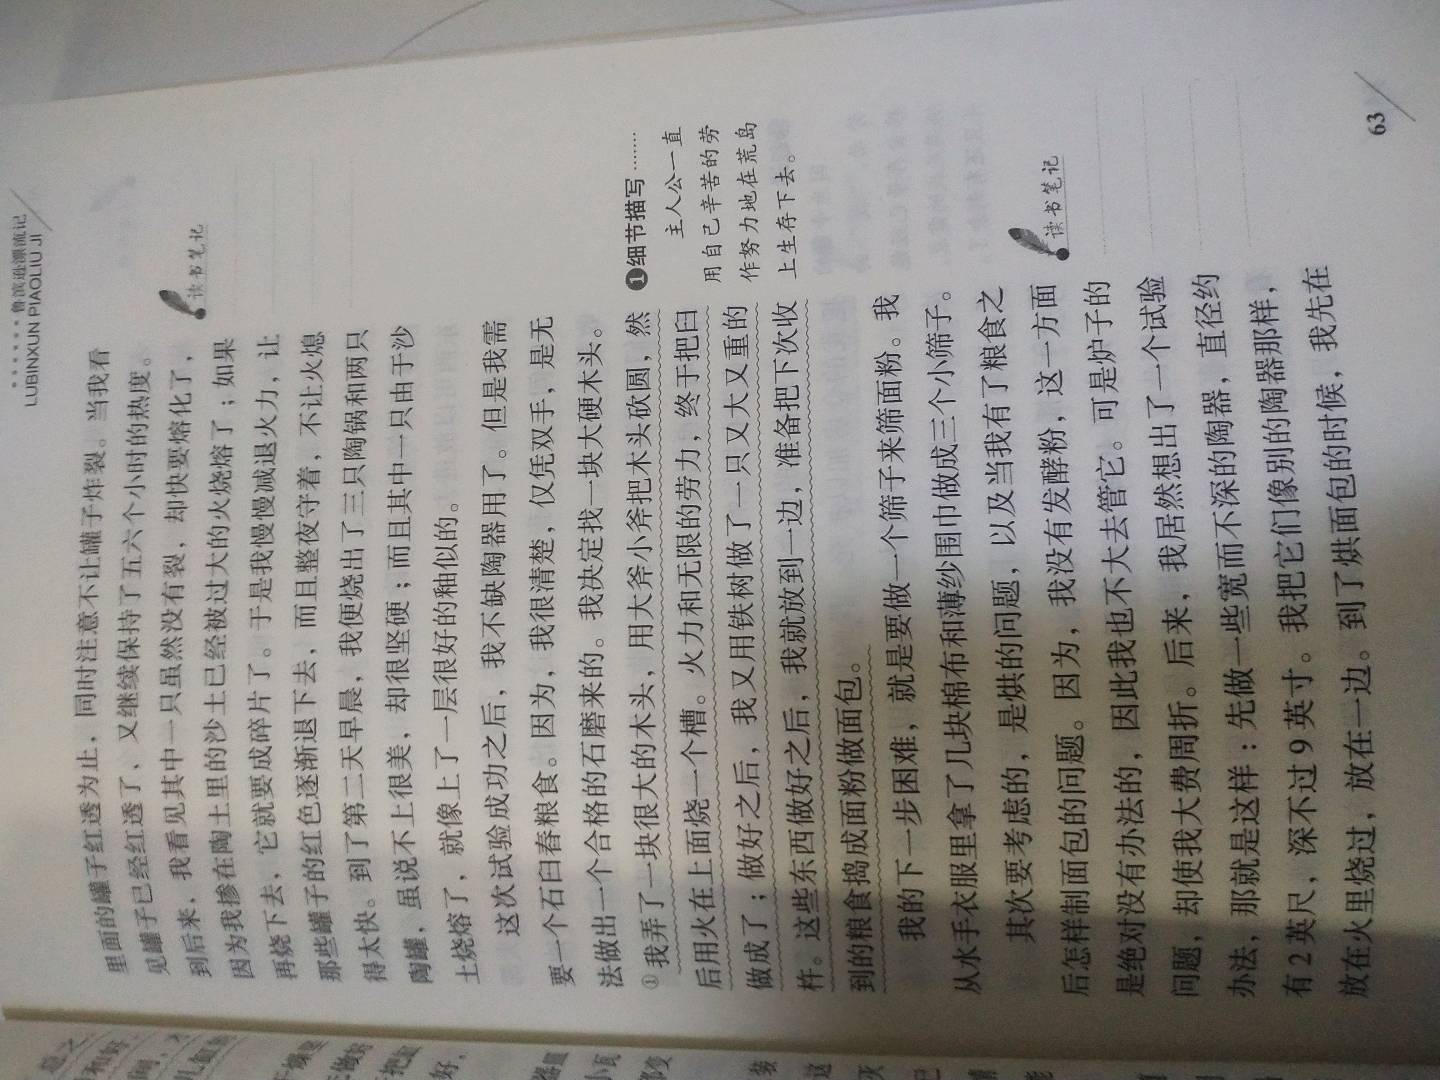 鲁滨逊漂流记
LUBINXUN PIAOLIU JI
里面的罐子红透为止，同时注意不让罐子炸裂。当我看
见罐子已经红透了、又继续保持了五六个小时的热度。
到后来，我看见其中一只虽然没有裂，却快要熔化了，
因为我掺在陶土里的沙土已经被过大的火烧熔了；如果
再烧下去，它就要成碎片了。于是我慢慢减退火力，让
那些罐子的红色逐渐退下去，而且整夜守着，不让火熄
得太快。到了第二天早晨，我便烧出了三只陶锅和两只
陶罐，虽说不上很美，却很坚硬；而且其中一只由于沙
土烧熔了，就像上了一层很好的釉似的。
这次试验成功之后，我不缺陶器用了。但是我需
要一个石臼舂粮食。因为，我很清楚，仅凭双手，是无
法做出一个合格的石磨来的。我决定找一块大硬木头。
①我弄了一块很大的木头，用大斧小斧把木头砍圆，然
后用火在上面烧一个槽。火力和无限的劳力，终于把臼
做成了；做好之后，我又用铁树做了一只又大又重的
杵。这些东西做好之后，我就放到一边，准备把下次收
到的粮食捣成面粉做面包。
我的下一步困难，就是要做一个筛子来筛面粉。我
从水手衣服里拿了几块棉布和薄纱围巾做成三个小筛子。
其次要考虑的，是烘的问题，以及当我有了粮食之
后怎样制面包的问题。因为，我没有发酵粉，这一方面
是绝对没有办法的，因此我也不大去管它。可是炉子的
问题，却使我大费周折。后来，我居然想出了一个试验
办法，那就是这样：先做一些宽而不深的陶器，直径约
有2英尺，深不过9英寸。我把它们像别的陶器那样，
放在火里烧过，放在一边。到了烘面包的时候，我先在
读书笔记
❶细节描写……
主人公一直
用自己辛苦的劳
作努力地在荒岛
上生存下去。
读书笔记
63